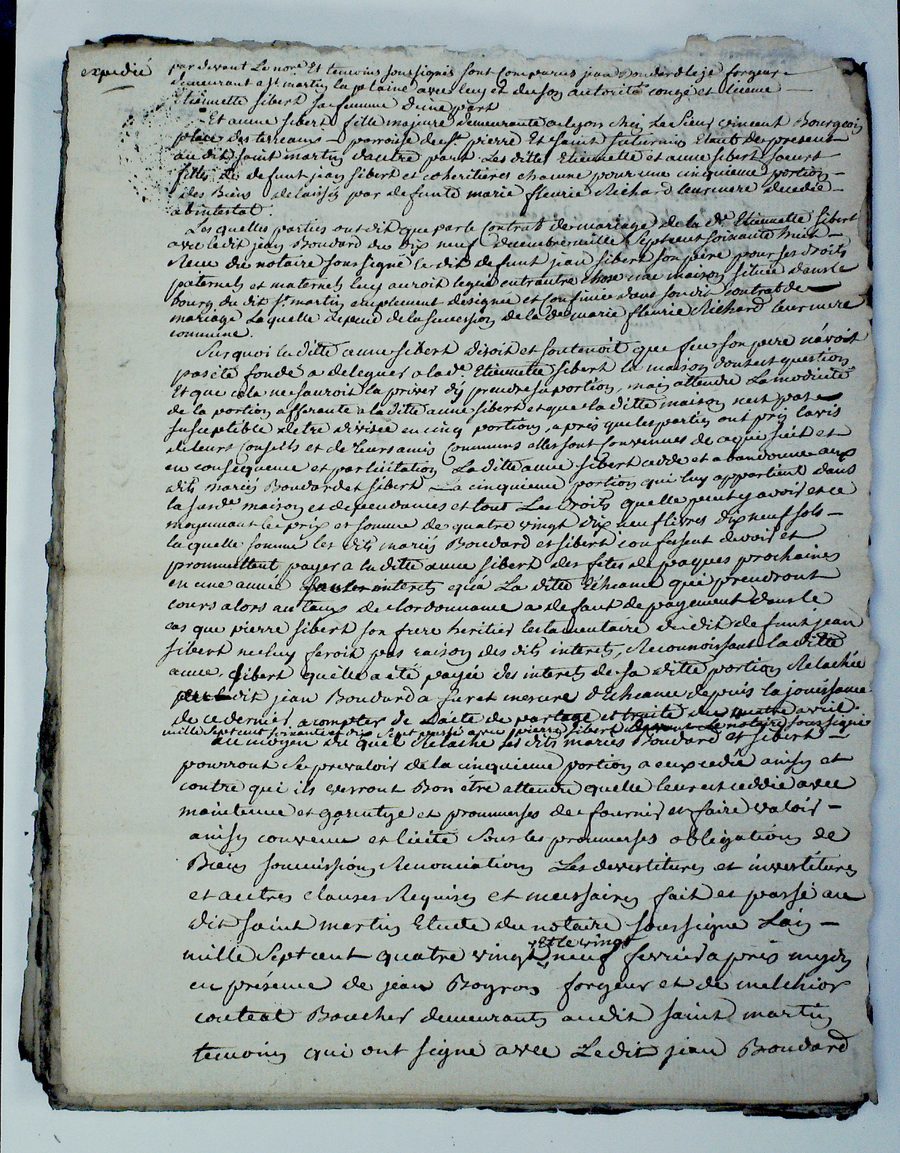 expedié
par devant Le nore Et temoins soussignés sont comparus jean Boudard lejé forgeur
demeurant a st martin la plaine avec luy et de son autorité congé et licence
Etiennette sibert sa femme d'une part
Et anne sibert fille majeure demeurante a lyon chez Le sieur vincent Bourgeois
place des terreaux parroisse de st pierre Et saint saturnin Etant de present
au dit saint martin d'autre part Les dittes Etiennette et anne sibert soeurs
filles de defunt jean sibert et coheritieres chacune pour une cinquieme portion
des Biens delaissés par defunte marie fleurie Richard leur mere decedée
abintestat.
Les quelles parties ont dit que par le Contrat de mariage de la de Etiennette sibert
avec le dit jean Boudard du dix neuf decembre mille sept cent soixante huit
Recu du notaire soussigné le dit defunt jean sibert son père pour ses droits
paternels et maternels luy auroit legué entrautre chose une maison située dans le
bourg du dit st martin amplement designée et confinée dans son dit contrat de
mariage Laquelle depend de la succession de la de marie fleurie Richard leur mere
commune.
Sur quoi la ditte anne sibert disoit et soutenoit que feu son pere n'avoit
pas été fondé a deleguer a la de Etiennette sibert la maison dont est question
Et que cela ne sauroit la priver d'y prendre sa portion, mais attendu La modicité
de la portion afferante a la ditte anne sibert et que la ditte maison n'est pas
susceptible d'etre divisée en cinq portions, après que les parties ont pris l'avis
de leurs Conseils et de leurs amis Communs elles sont convenues de ce qui suit et
en consequence et par licitation La ditte anne sibert cede et abandonne aux
dits mariés Boudard et sibert La cinquieme portion qui luy appartient dans
la susde maison et dependances et tout Les droits quelle peut y avoir et ce
moyennant le prix et somme de quatre vingt dix neuf livres dix neuf sols
la quelle somme les dits mariés Boudard et sibert confessent devoir et
prommettent payer a la ditte anne sibert des fetes de paques prochaines
en une année interets jusqu'a La ditte Echeance qui prendront
cours alors au taux de L'ordonnance a defaut de payement dans le
cas que pierre sibert son frere heritier testamentaire du dit defunt jean
sibert ne luy feroit pas raison des dits interets, Reconnoissant la ditte
anne Sibert quelle a eté payée des interets de sa ditte portion Relachée
par le dit jean Boudard a fur et mesure d'Echeance depuis la jouissance
de ce dernier, a compter de l'acte de partage et traité du quatre avril
mille sept cent soixante et dix sept passé avec pierre Sibert devant le notaire soussigné
au moyen du quel Relache Les dits mariés Boudard et sibert
pourront se prevaloir de la cinquieme portion a eux cedée ainsy et
contre qui ils verront Bon être attendu quelle leur est ceddée avec
maintenue et garentye et prommesses de fournir et faire valoir
ainsy convenu et licité sous les prommesses obligations de
Biens soumissions Renonciations Les devestitures et investitures
et autres clauses Requises et necessaires fait et passé au
dit saint martin Etude du notaire soussigné L'an
mille sept cent quatre vingt et le vingt neuf fevrier après mydy
en présence de jean Boyron forgeur et de melchior
couteat Boucher demeurants au dit saint martin
temoins qui ont signé avec Ledit jean Boudard